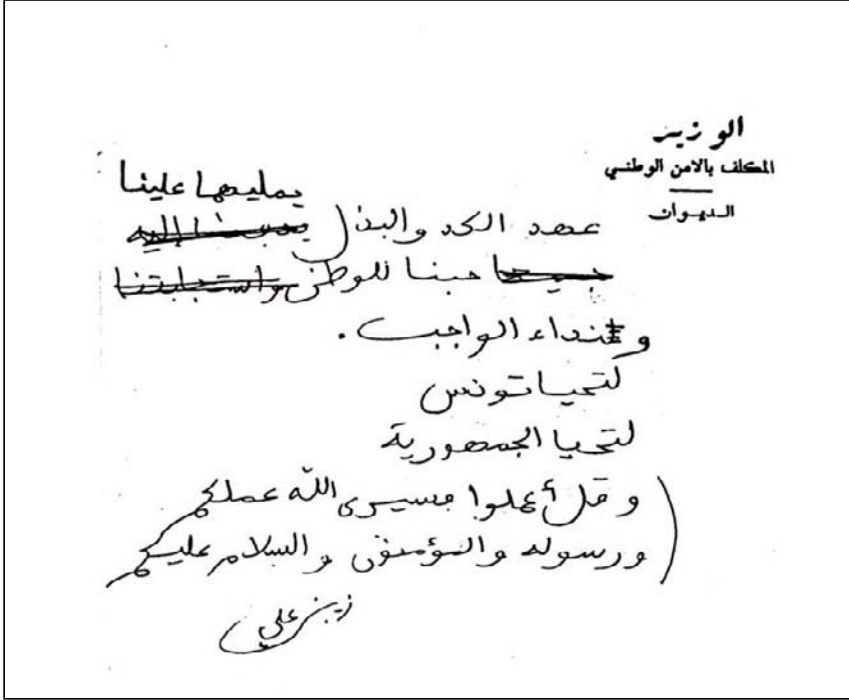 الوزير
المكلف بالامن الوطني
الديوان
يمليها علينا
عهد الكد والبذل
حبنا للوطن واستجابتنا
ونداء الواجب.
لتحيا تونس
لتحيا الجمهورية
(وقل أعملوا فسيرى الله عملكم
ورسوله والمؤمنون والسلام عليكم
زين علي